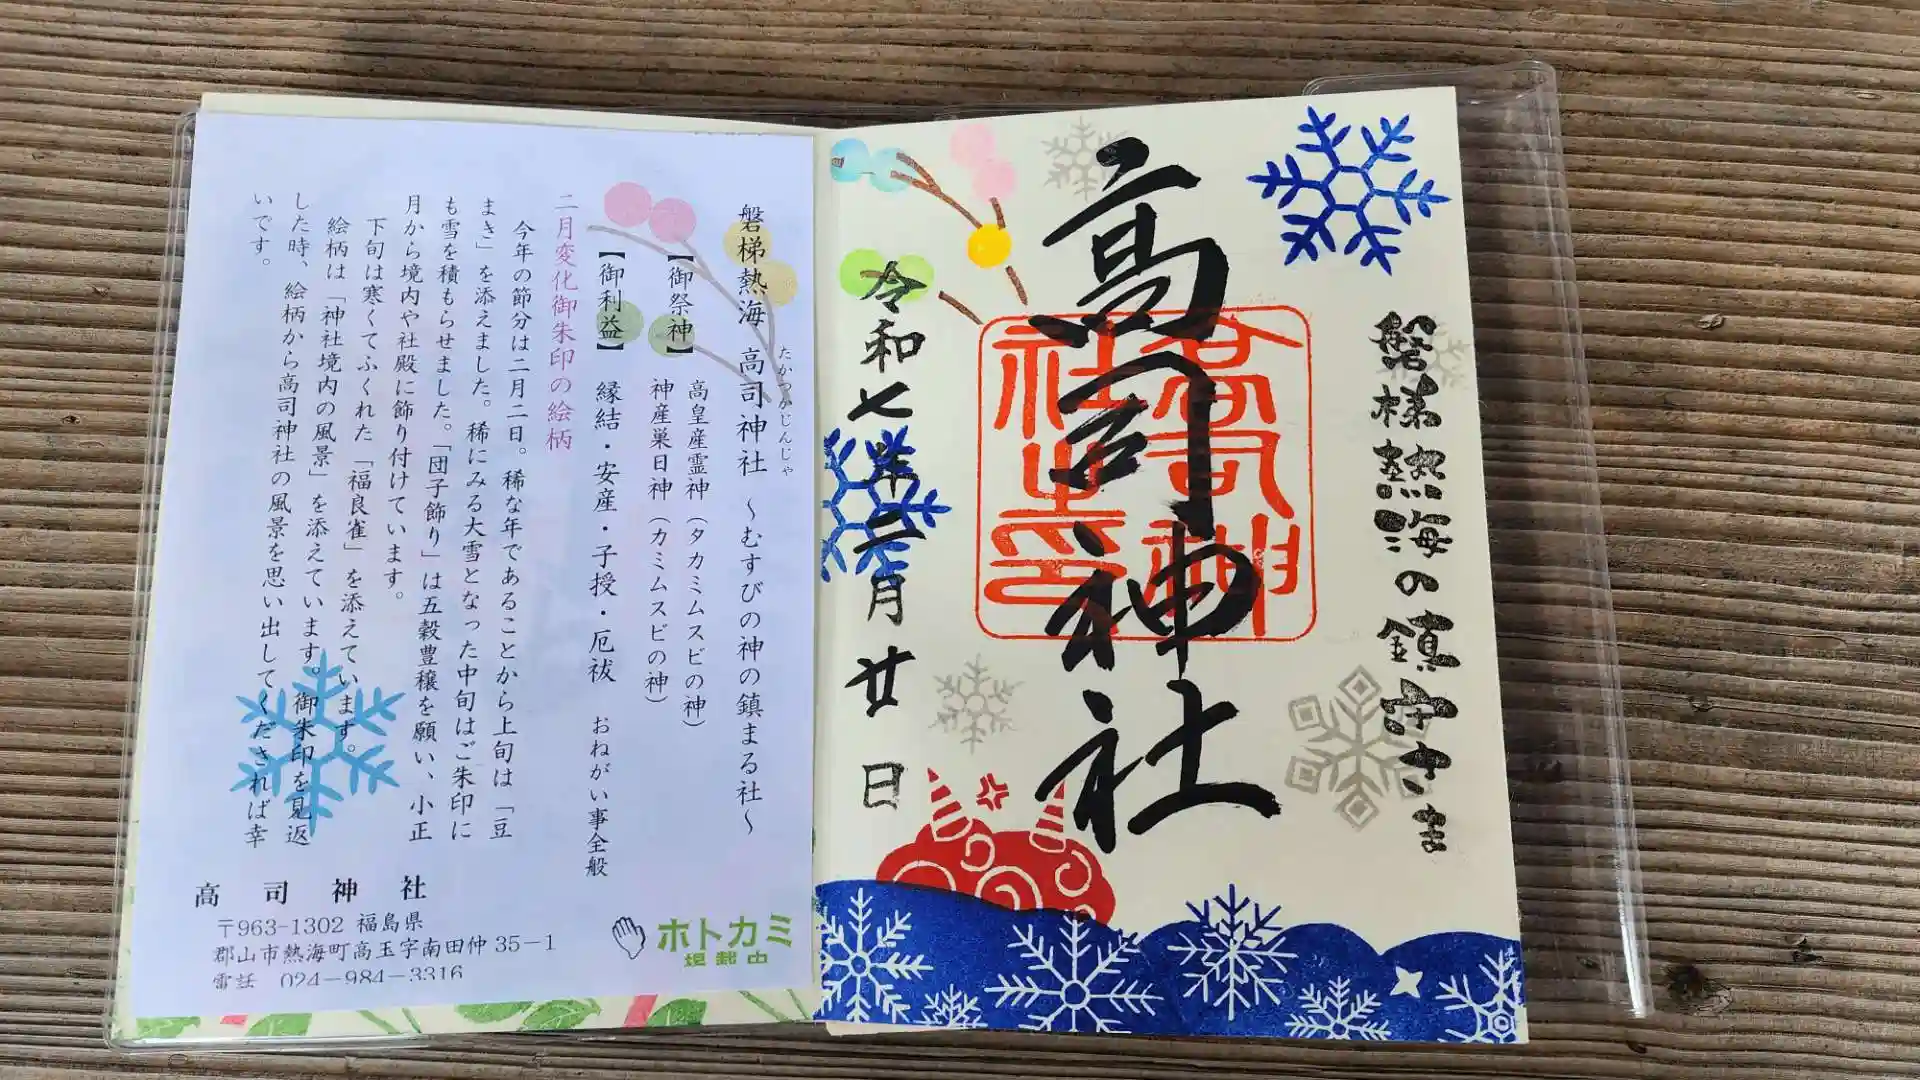 磐梯熱海の鎮守さま
高司神社
高司神社之印
令和七年二月廿日
磐梯熱海 高司神社 ～むすびの神の鎮まる社～
たかつかさじんじゃ
【御祭神】 高皇産霊神（タカミムスビの神）
神産巣日神（カミムスビの神）
【御利益】 縁結・安産・子授・厄祓 おねがい事全般
二月変化御朱印の絵柄
今年の節分は二月二日。稀な年であることから上旬は「豆
まき」を添えました。稀にみる大雪となった中旬はご朱印に
も雪を積もらせました。「団子飾り」は五穀豊穣を願い、小正
月から境内や社殿に飾り付けています。
下旬は寒くてふくれた「福良雀」を添えています。
絵柄は「神社境内の風景」を添えています。御朱印を見返
した時、絵柄から高司神社の風景を思い出してくだされば幸
いです。
高司神社
〒963-1302 福島県
郡山市熱海町高玉字南田仲35-1
電話 024-984-3316
ホトカミ
掲載中